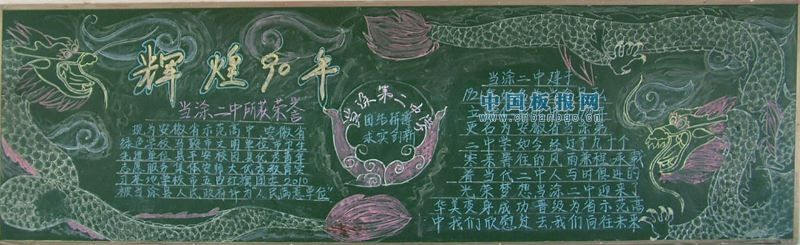 辉煌90年
当涂二中所获荣誉
现为安徽省示范高中 安徽省
绿色学校 马鞍市文明单位 市卫生
先进单位 县平安校园 县优秀青年
志愿服务集体 安徽大优秀教育实
习基地 学校 市五四红旗团委 2010
被当涂县人民政府评为"人民满意单位"
当涂第二中学
团结拼搏
求实创新
当涂二中建于
更名为安徽省当涂第
二中学 如今经过了九十个
实来著往的风雨兼程 承载
着当代二中人与时俱进的
光荣梦想 当涂二中迎来了
华美变身成功晋级为省示范高
中 我们欣慰过去 我们向往未来
中国板报网
www.cnbanbao.cn